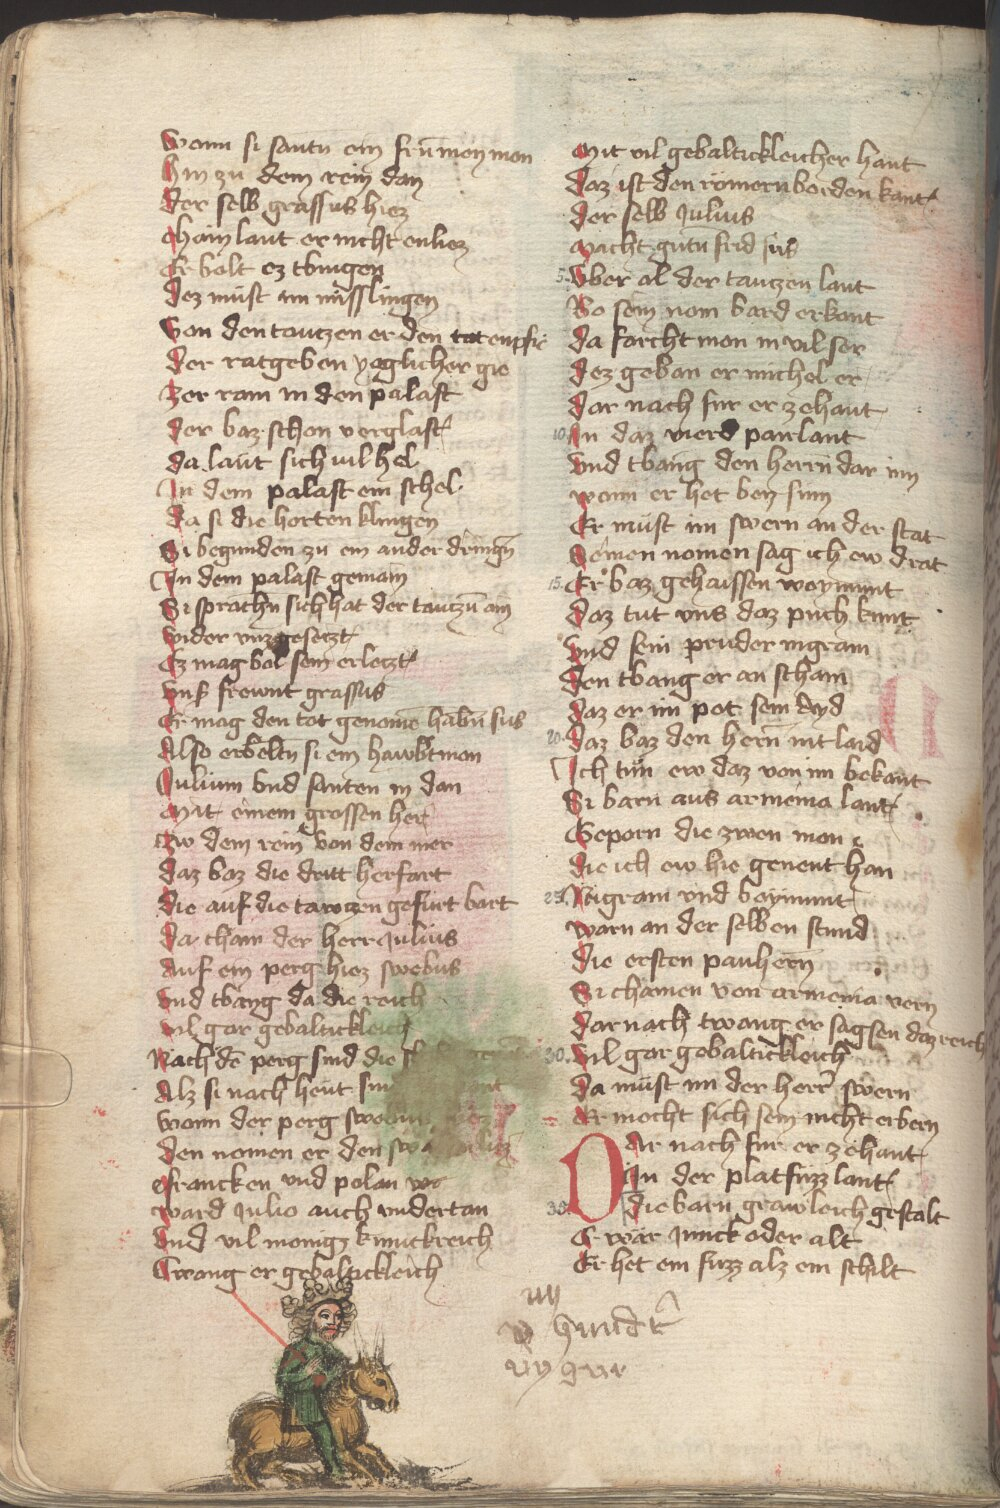 Wann si santn ein frumen man
Hin zu dem rein dan
Der selb grassus hiez
Chain laut er nicht enliez
Er bolt ez tbingen
Dez must im misslingen
Von den tautzen er den tot enpfie
Der ratgeben yeglicher gie
Zer ram in den palast
Der baz schon verglast
Da laut sich vil hel
In dem palast ein schel
Da si die horten klingen
Si begunden zu ein ander dringen
In dem palast gemain
Si sprachn sich hat der tautzn ain
Wider vnz gesetzt
Ez mag bol sein erletzt
Vnser frewnt grassus
Er mag den tot genomen habn sus
Also erbeltn si ein hawbtman
Julium vnd santen in dan
Mit einem grossen her
Zw dem rein von dem mer
Daz baz die dritt herfart
Die auf die tawtzen gefurt bart
Da cham der herr Julius
Auf ein perg hiez swebus
Vnd tbang da die reich
Vil gar gebaltickleich
Nach dem perg sind die
Alz si nach heut sin
Wann der perg
Den nomen er den
Francken vnd polan
Ward Julio auch vndertan
Vnd vil monigz kunickreich
Twang er gebaltickleich
Mit vil gebaltickleicher hant
Daz ist den römern borden kant
Der selb Julius
Macht gutn frid sus
5. Vber al der tautzen lant
Bo sein nom bard erkant
Da forcht mon in vil ser
Dez geban er michel er
Dar nach fur er zehant
10. In daz vierd pairlant
Vnd tbang den herrn dar inn
Wann er het ben sinn
Er must im swern an der stat
Seinen nomen sag ich ew drat
15. Er baz gehaissen woymunt
Daz tut vns daz puch kunt
Vnd sein pruder ingram
Den tbang er an scham
Daz er im pot sein ayd
20. Daz baz den hern nit laid
Ich tun ew daz von im bekant
Si barn aus armenia lant
Geporn die zwen man
Die ich ew hie genent han
25. Ingram vnd boymunt
Warn an der selben stund
Die ersten pauhern
Si chamen von armenia vern
Dar nach twang er sagsen daz reich
30. Vil gar gebaltickleich
Da must im der herr swern
Er mocht sich sein nicht erbern
Dar nach fur er zehant
In der platfuzz lant
35. Die barn grawleich gestalt
Er wär junck oder alt
Er het ein fuzz alz ein schilt